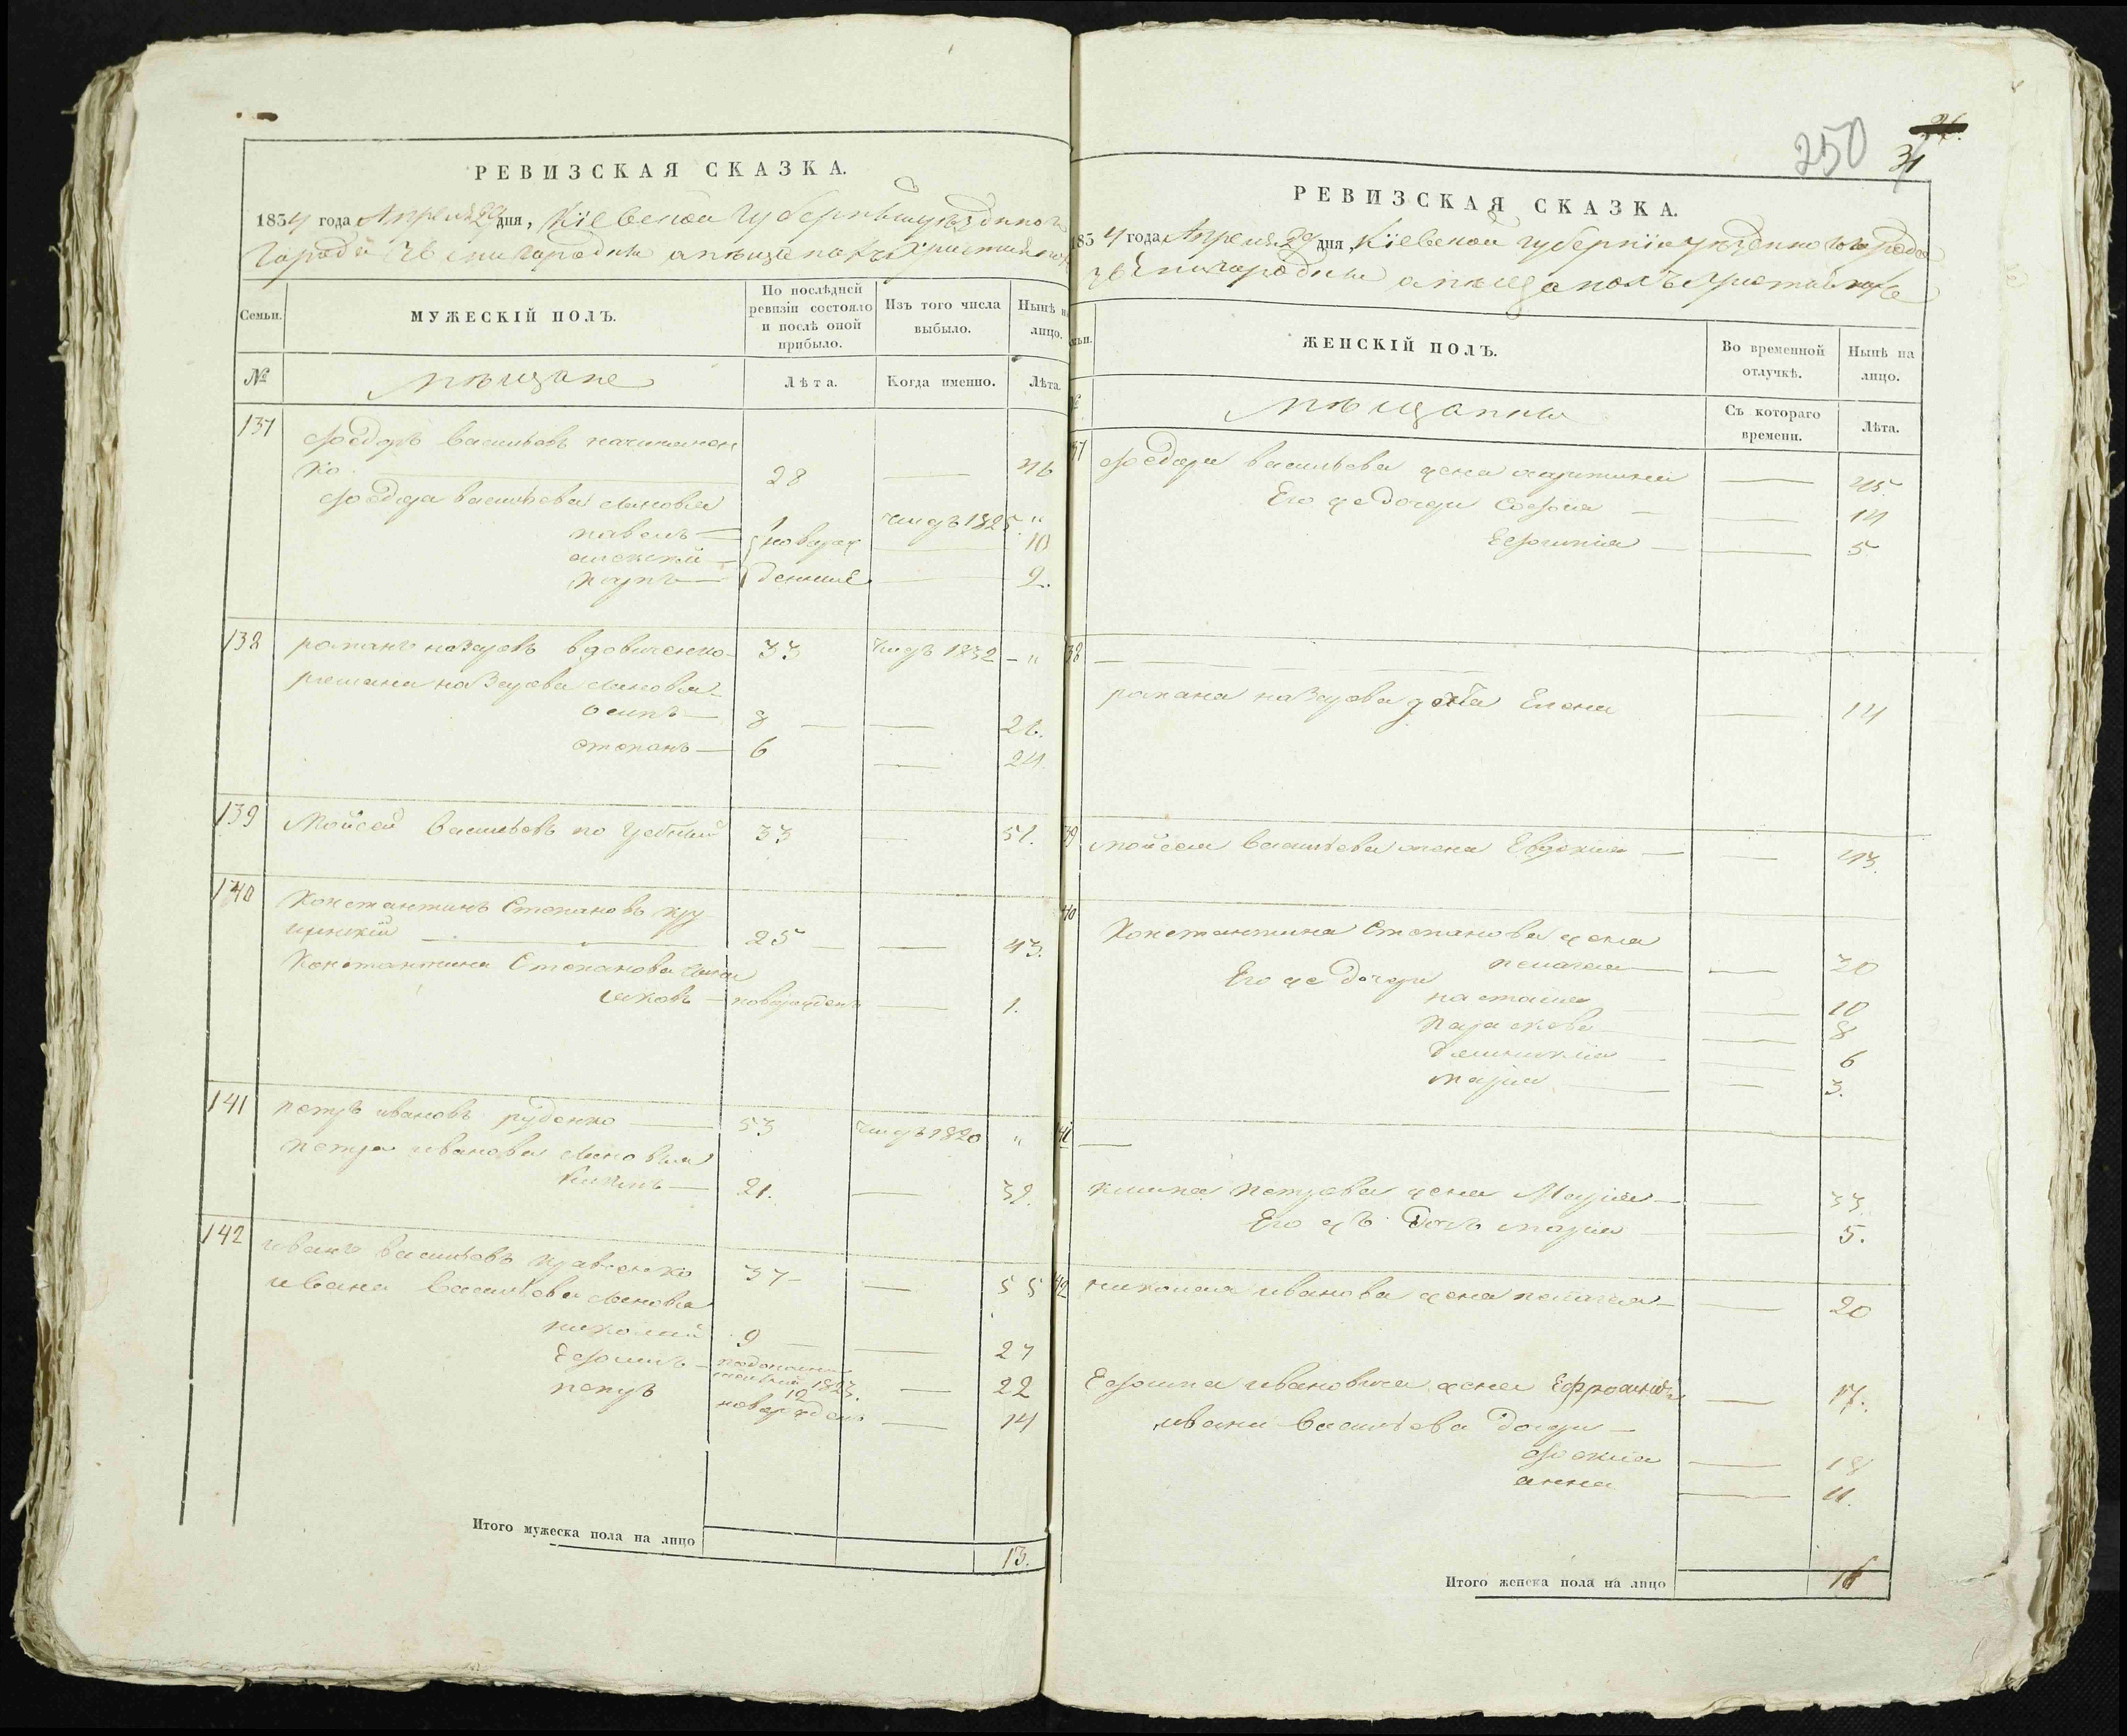 РЕВИЗСКАЯ СКАЗКА.
1834 года Апреля 29 дня, Кіевской губерніи уѣзднаго
города Звенигородки о мѣщанахъ христианахъ
Семьи.
МУЖЕСКІЙ ПОЛЪ.
По послѣдней ревизіи состояло и послѣ оной прибыло.
Изъ того числа выбыло.
Нынѣ на лицо.
№
мѣщане
Лѣта.
Когда именно.
Лѣта.
137
Федоръ Васильевъ
ко 28 — 46
Федора Васильева сыновья
павелъ — 1 умеръ 1825 "
алексѣй — новорож 10
карпъ — денные 2.
138 романъ назаровъ вдовиченко 33 умръ 1832 — "
романа назарова сыновья
осипъ — 8 — — 26.
степанъ — 6 — 24.
139 Мойсей Васильевъ 33 — 51.
140 Константинъ Степановъ кру
25 — 43.
Константина Степанова сынъ
яковъ — новорожденъ — 1.
141 петръ ивановъ руденко — 53 умръ 1820 "
петра иванова сыновья
климъ — 21. — 39.
142 иванъ васильевъ кравченко 37 — 55
ивана васильева сыновья
николай 9 — — 27
Ефимъ — 12 — 22
петръ новорожденъ — 14
Итого мужеска пола на лицо
13.
250
31
РЕВИЗСКАЯ СКАЗКА.
1834 года Апреля 29 дня, Кіевской губерніи уѣзднаго города
Звенигородки о мѣщанахъ христианахъ
Семьи.
ЖЕНСКІЙ ПОЛЪ.
Во временной отлучкѣ.
Нынѣ на лицо.
№
мѣщанки
Съ котораго времени.
Лѣта.
137 Федора васильева жена — 45.
Его же дочери София — — 14
Ефимия — — 5
138 —
романа назарова дочь Елена — 14
139 мойсея васильева жена Евдокия — — 43.
140
Константина Степанова жена
пелагея — — 30
Его же дочери
настасия — 10
параскева — 8
6
мария — 3.
141 —
клима петрова жена Мария — — 33.
Его жъ дочь мария — 5.
142 николая иванова жена пелагея — — 20
Ефима ивановича жена — 17.
ивана васильева дочери —
— 18
анна — 11.
Итого женска пола на лицо
16